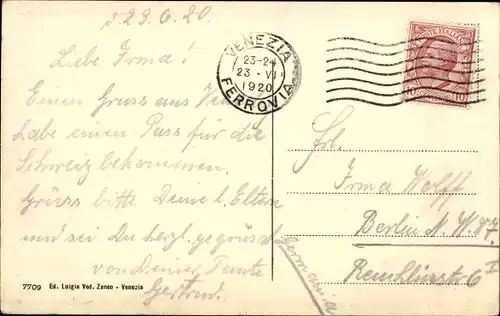 d. 23.6.20.
Liebe Irma!
Einen Gruss aus
habe einen Pass für die
Schweiz bekommen.
Grüss bitte Deine l. Eltern
und sei Du herzl. gegrüsst
von Deiner Tante
Gertrud.
7709 Ed. Luigia Ved. Zanco - Venezia
VENEZIA
23-24
23 · VI
1920
FERROVIA
POSTE ITALIANE
10 10
Frl.
Irma Wolff
Berlin N.W. 87.
Reuchlinstr 6 I
Germania